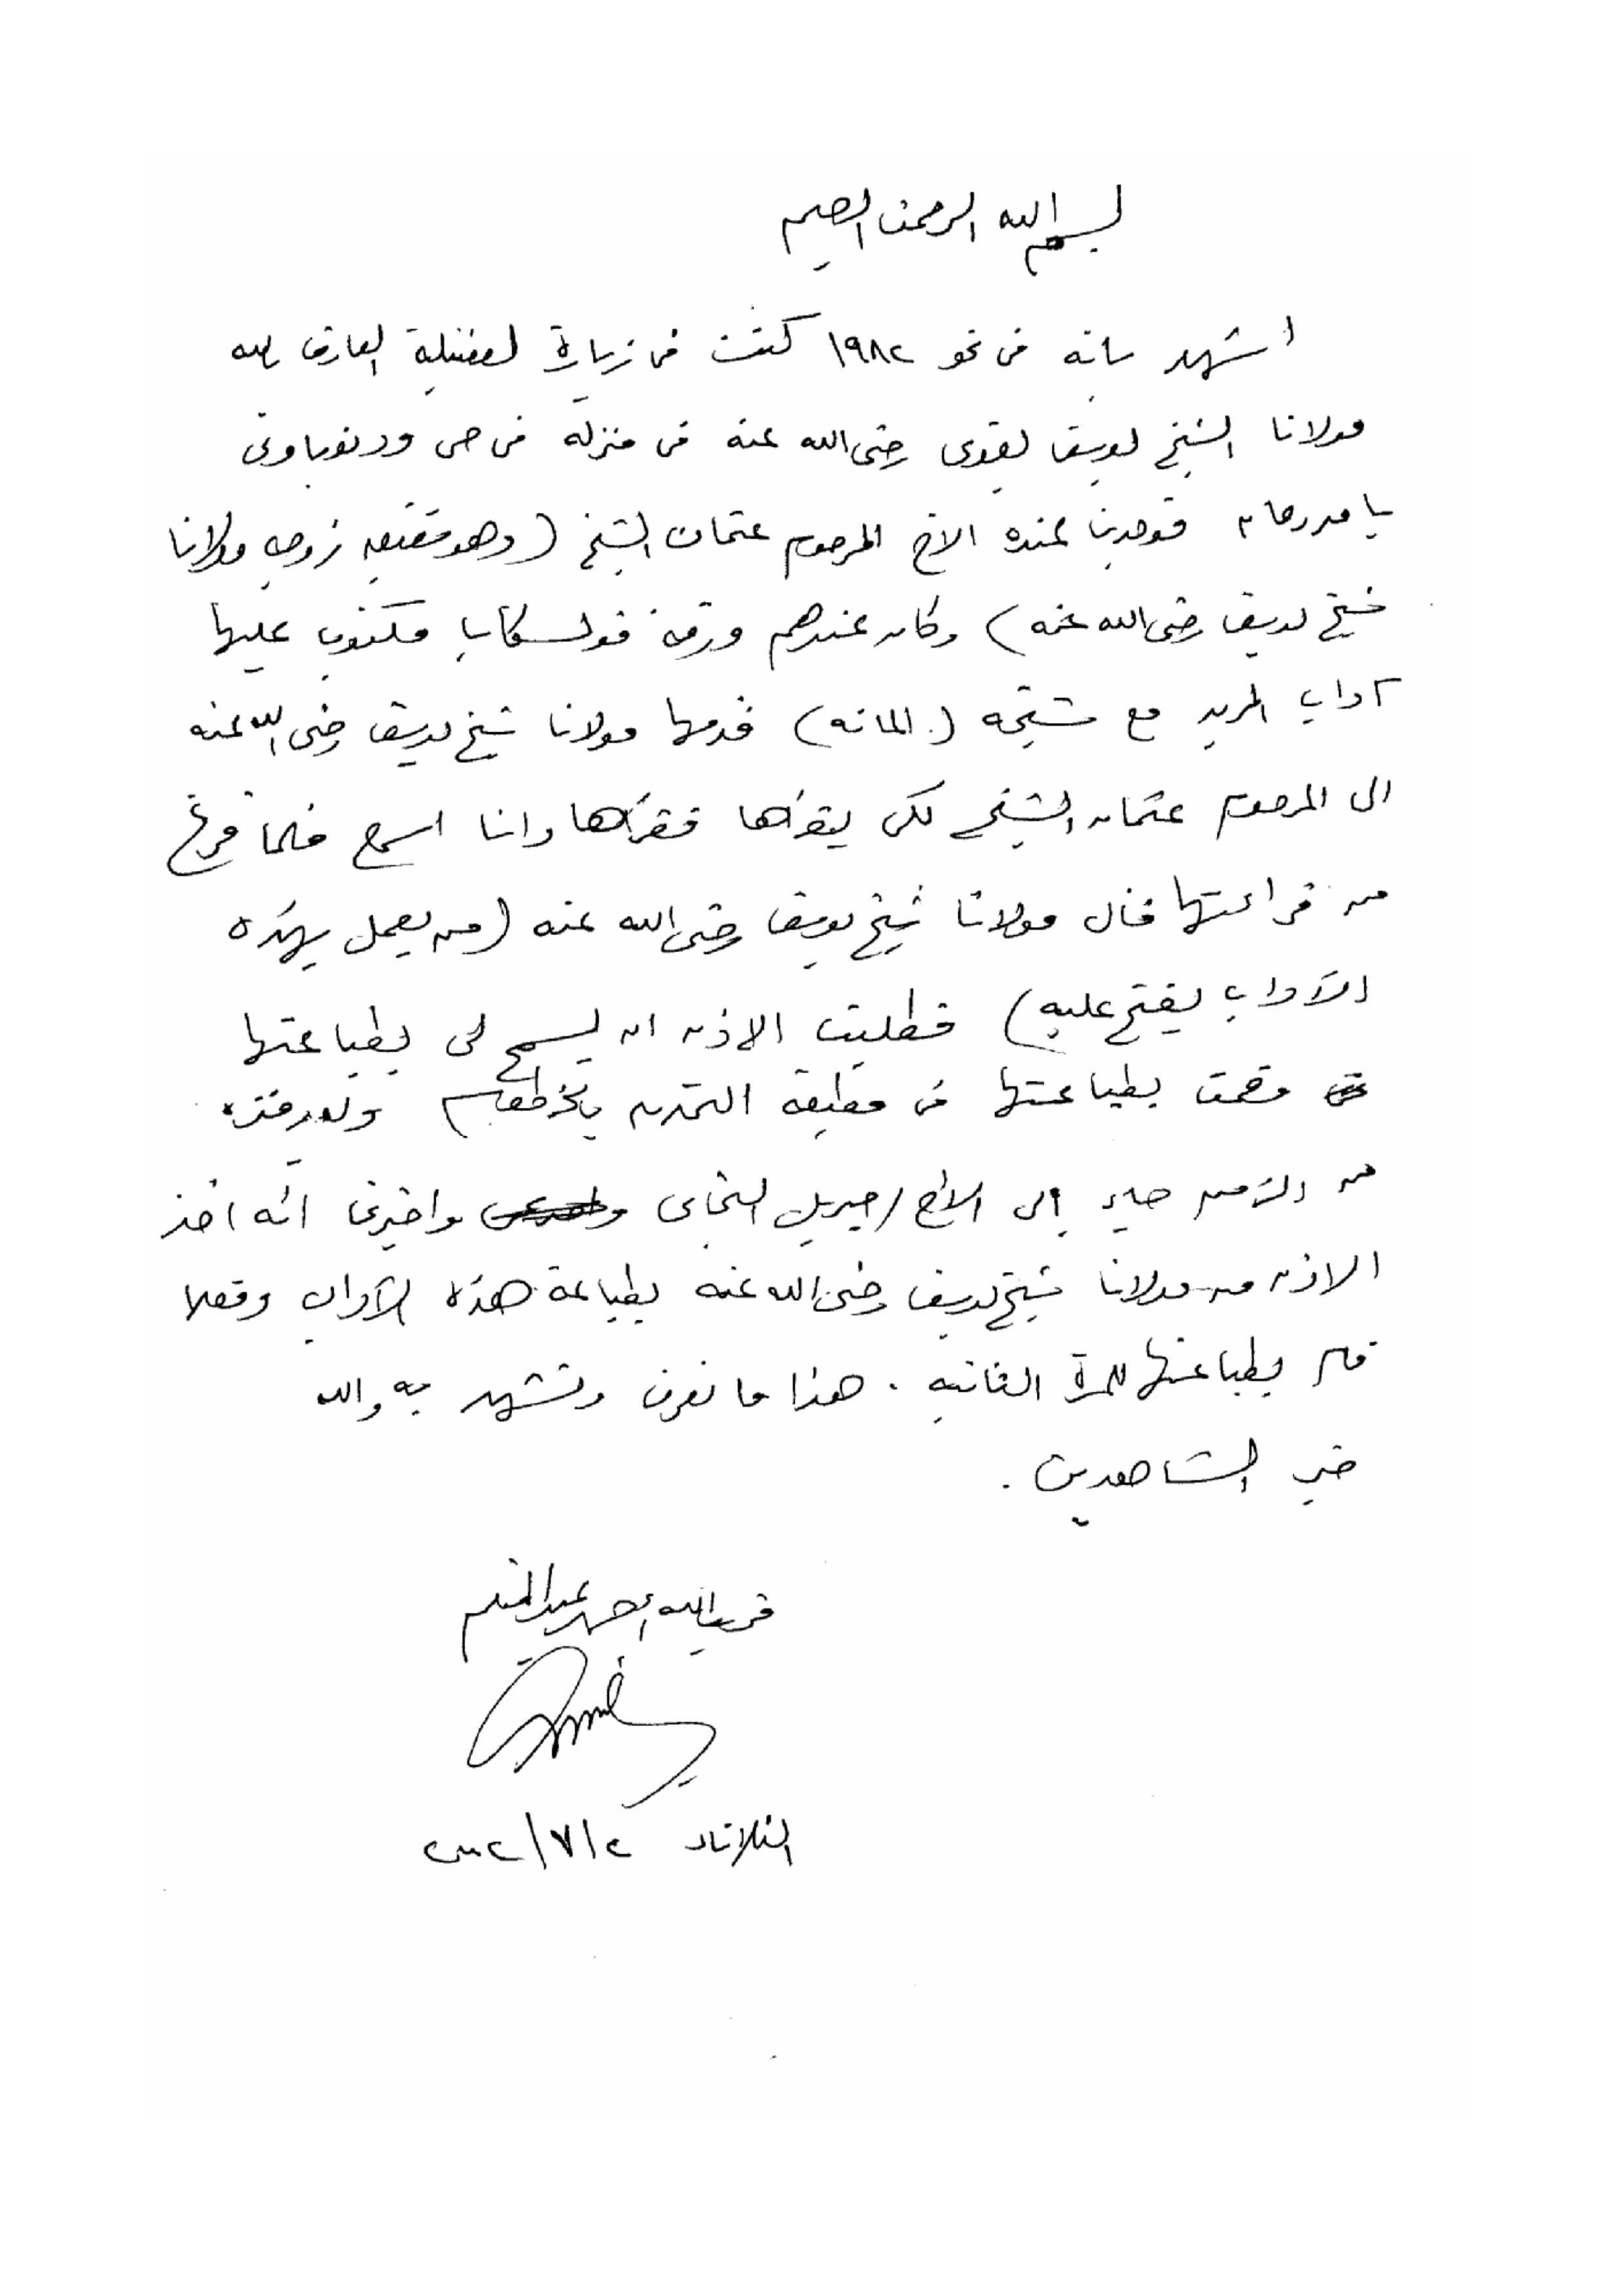 بسم الله الرحمن الرحيم
اشهد بانه فى نحو ١٩٨٢ كنت فى زيارة لفضيلة العارف بالله
مولانا الشيخ يوسف بقوى رضى الله عنه فى منزله فى حى ودنوباوى
بامدرمان فوجدت عنده الاخ المرحوم عثمان الشيخ (وهو شقيق زوجه مولانا
شيخ يوسف رضى الله عنه) وكان عندهم ورقة فولسكاب مكتوب عليها
آداب المريد مع شيخه (المائه) قدمها مولانا شيخ يوسف رضى الله عنه
الى المرحوم عثمان الشيخ لكى يقرأها فقرأها وانا اسمع فلما فرغ
من قراءتها قال مولانا شيخ يوسف رضى الله عنه (من يعمل بهذه
الآداب يفتح عليه) فطلبت الاذن ان يسمح لى بطباعتها
وقمت بطباعتها فى مطبعة التمدن بالخرطوم وبعد فترة
من الزمن جاء إلى الاخ / جبريل التجانى واخبرنى انه اخذ
الاذن من مولانا شيخ يوسف رضى الله عنه بطباعة هذه الآداب وفعلا
قام بطباعتها للمرة الثانيه . هذا ما نعرف ونشهد به والله
خير الشاهدين .
قريب الله احمد عبدالمنعم
الثلاثاء ٢ / ٧ / ٢٠٠٢